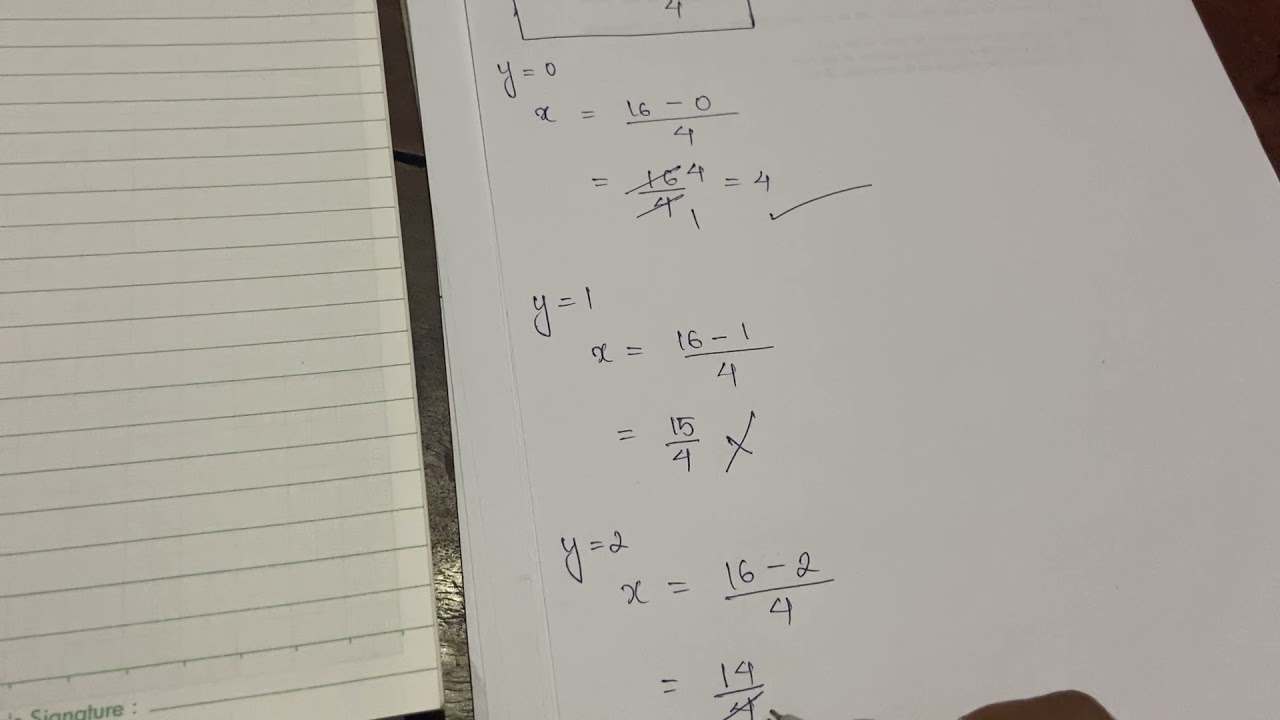 4
y = 0
x = 16 - 0 / 4
= 16 4 / 4 1 = 4 ✓
y = 1
x = 16 - 1 / 4
= 15 / 4 ✗
y = 2
x = 16 - 2 / 4
= 14 / 4
Signature :